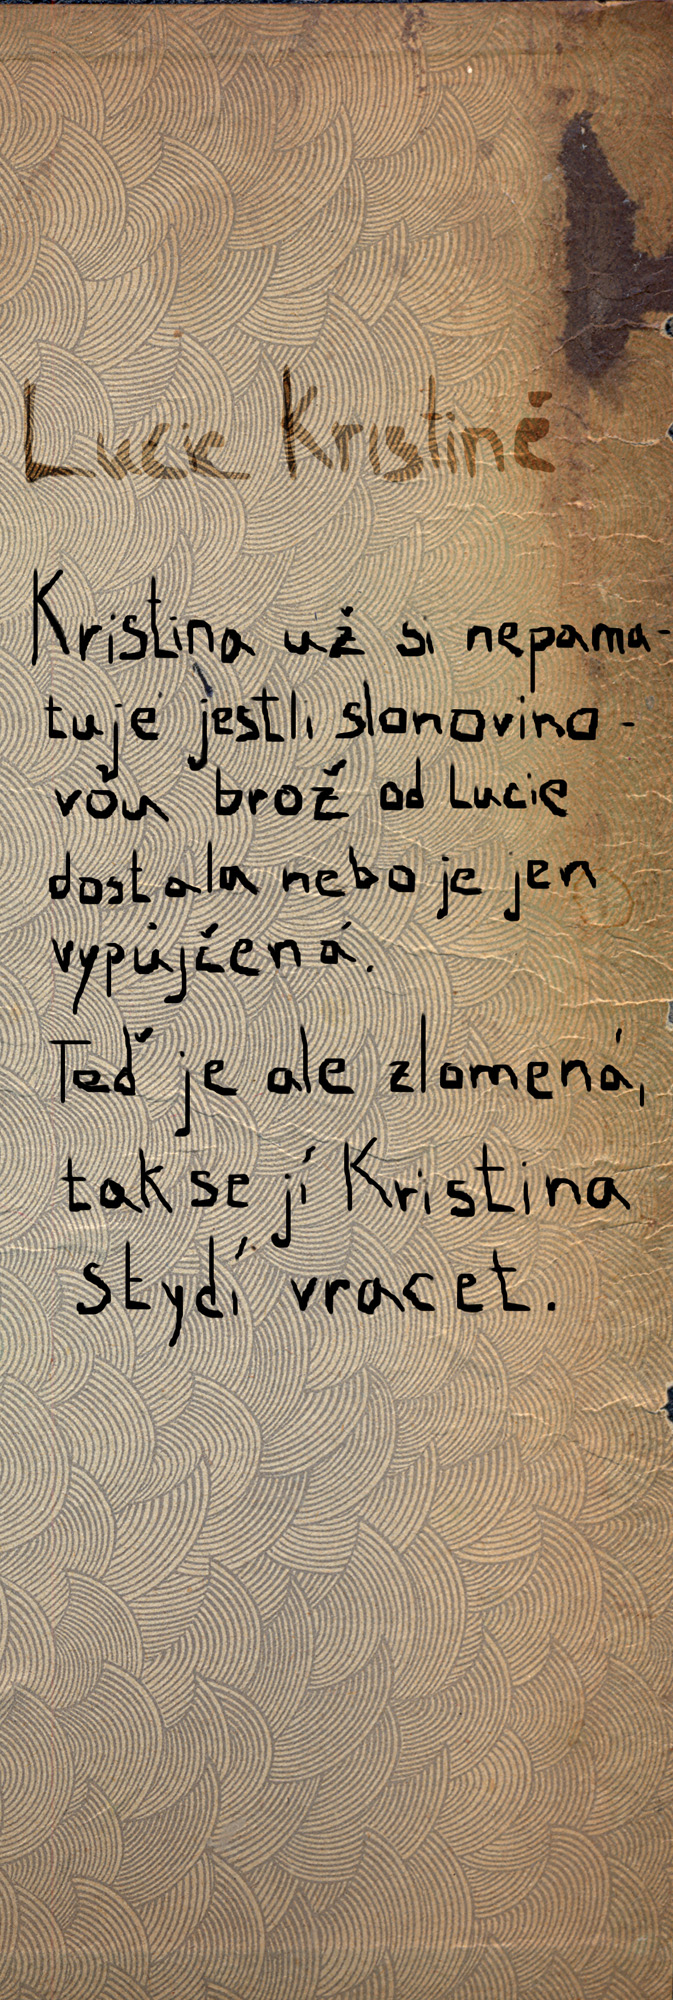 Lucie Kristině
Kristina už si nepama-
tuje jestli slonovino-
vou brož od Lucie
dostala nebo je jen
vypůjčená.
Teď je ale zlomená,
tak se jí Kristina
stydí vracet.